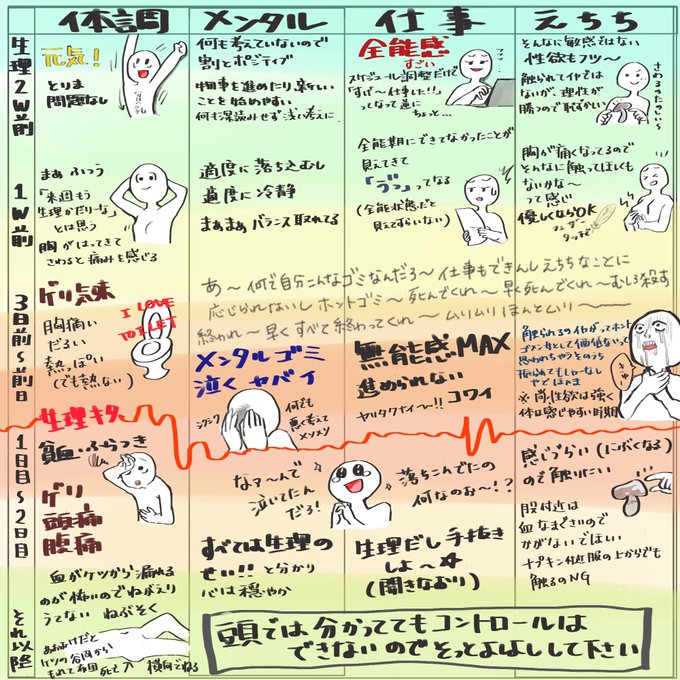 体調
メンタル
仕事
えちち
生理2W前
元気！
とりま
問題なし
何も考えていないので
割とポジティブ
物事を進めたり、新しい
ことを始めやすい
何も深読みせず浅い考え
全能感
すごい
スケジュール調整だけで
「すげ〜仕事した!!」
ってなって逆に
ちょっと…
そんなに敏感ではない
性欲もフツ〜
触られてイヤでは
ないが、理性が
勝つので恥ずかしい
1W前
まぁふつう
「来週もう
生理かだりーな」
とは思う
胸がはってきて
さわると痛みを感じる
適度に落ち込むし
適度に冷静
まぁまぁバランス取れてる
全能期にできてなかったことが
見えてきて
「ゔっ」ってなる
(全能状態だと
見えてすらいない)
胸が痛くなってるので
そんなに触ってほしくも
ないかな〜
って感じ
優しくならOK
フェザー
タッチで
3日前〜前日
ゲリ気味
胸痛い
だるい
熱っぽい
(でも熱ない)
I LOVE
TOILET
あ〜何で自分こんなゴミなんだろ〜仕事もできんしえちちなことに
応じられないしホントゴミ〜死んでくれ〜早く死んでくれ〜むしろ殺す
終われ〜早くすべて終わってくれ〜ムリムリほんとムリ〜
メンタルゴミ
泣くヤバイ
シクシク
何でも
悪く考えて
メソメソ
無能感MAX
進められない
ヤリタクナイ〜!!コワイ
触られるのイヤがってホント
ゴメンな
※尚性欲は強く
体は感じやすい時期
生理キタ
1日目〜2日目
貧血ふらつき
ゲリ
頭痛
腹痛
なァ〜んで
泣いてたん
だろ！
すべては生理の
せい!!と分かり
心は穏やか
落ちこんでたの
何なのぉ〜!？
生理だし手抜き
しよ〜☆
(開きなおり)
感じづらい(にぶくなる)
ので触りたい
股付近は
血なまぐさいので
かがないでほしい
ナプキン付近服の上からでも
触るのNG
それ以降
血がケツから漏れる
のが怖いのでねがえり
うてない ねぶそく
あおむけだと
ケツの谷間から
もれて布団死亡
横向きでねる
頭では分かっててもコントロールは
できないのでそっとよしよしして下さい